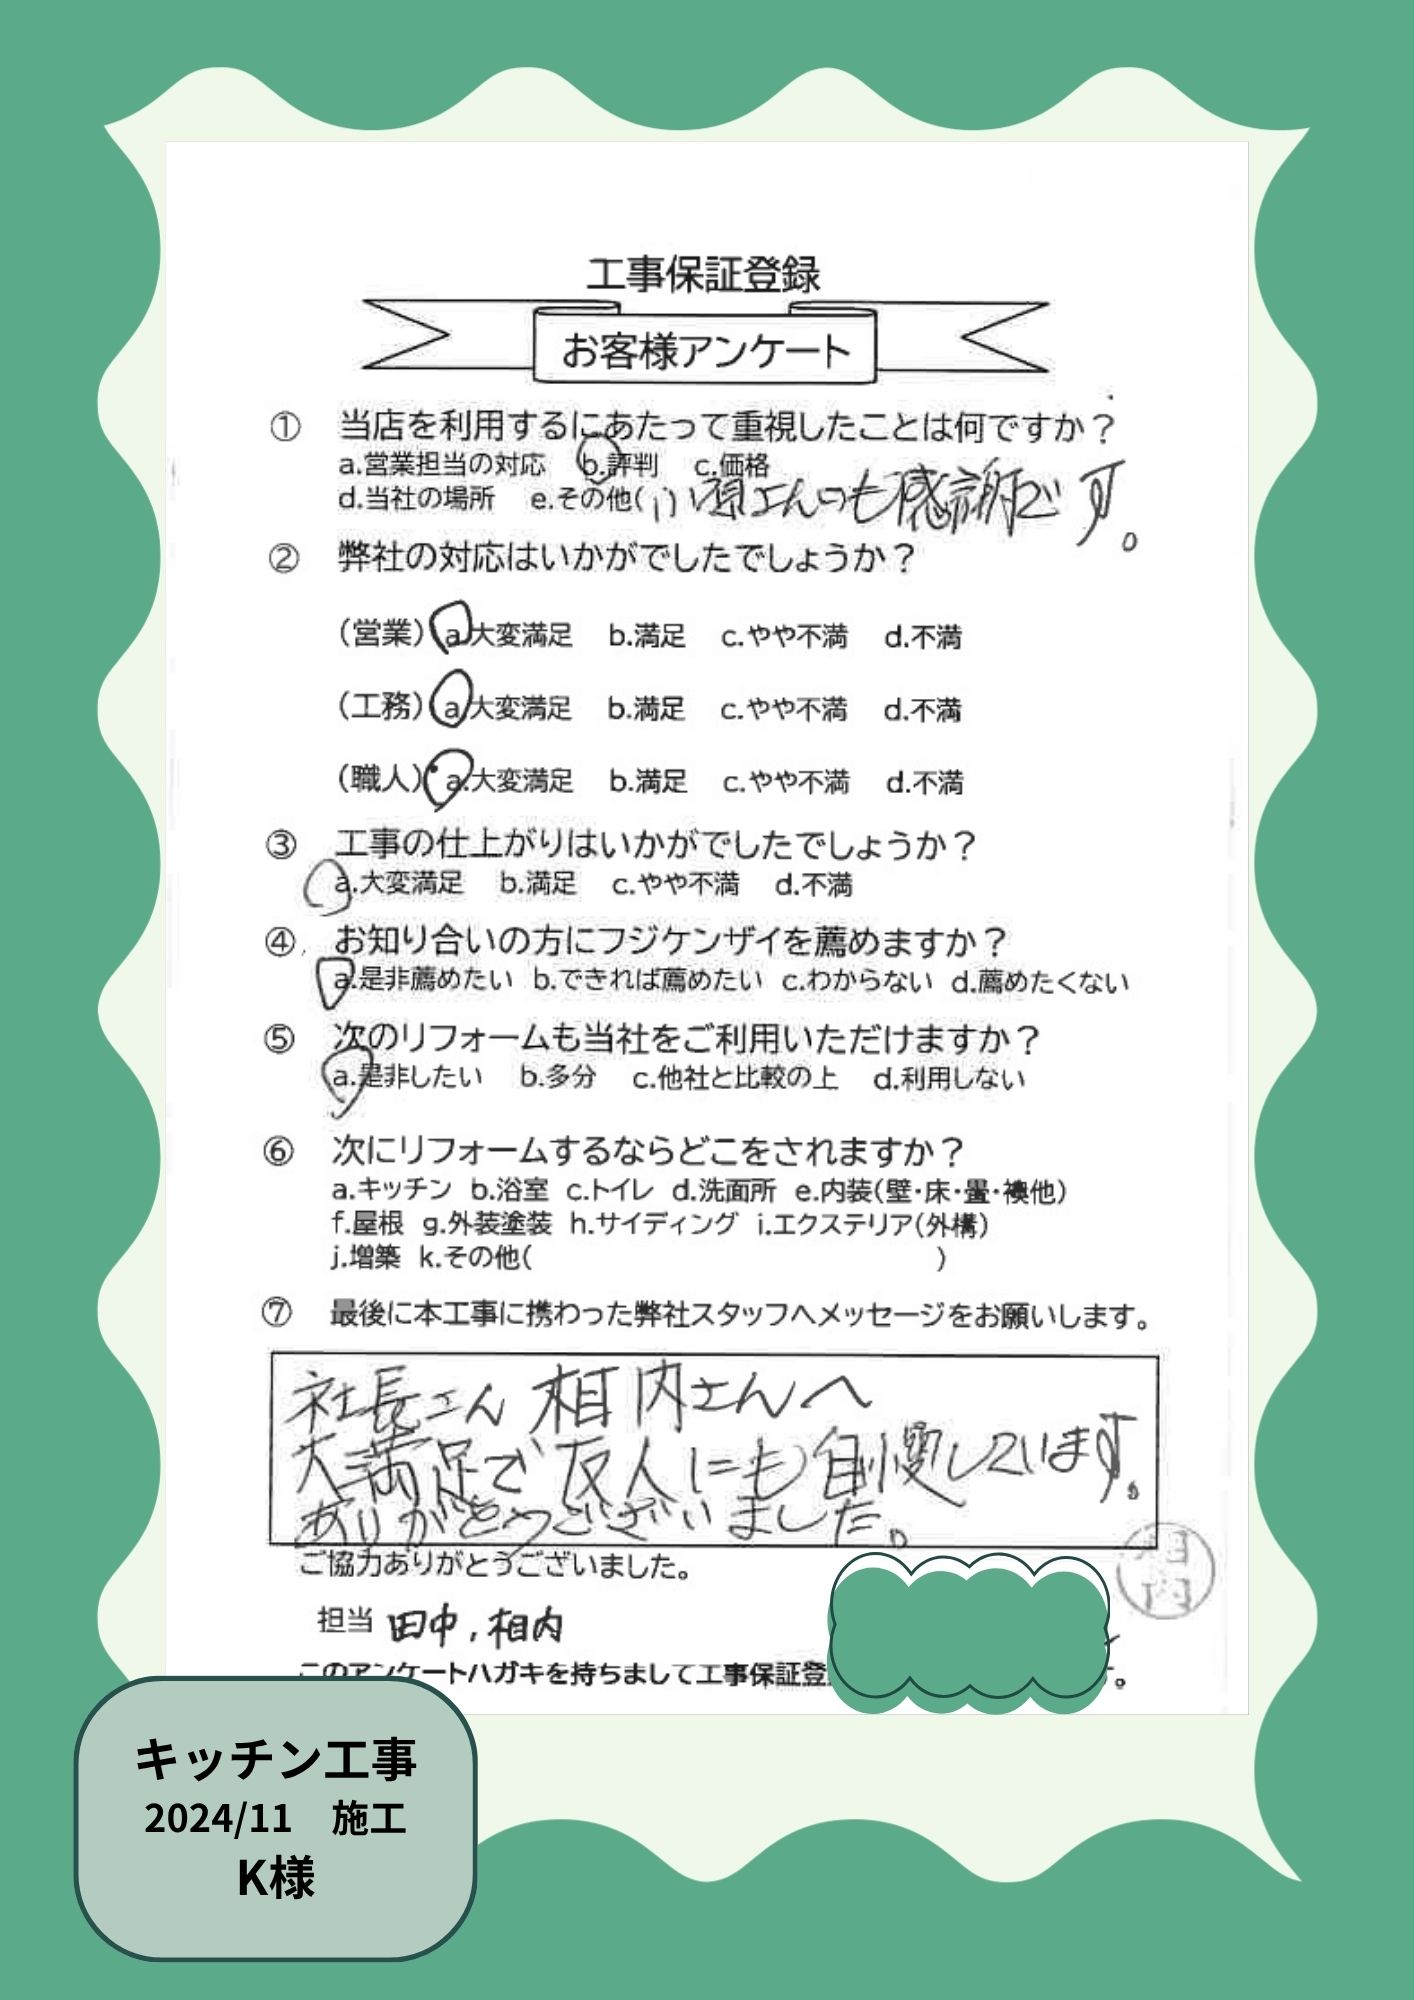 工事保証登録
お客様アンケート
① 当店を利用するにあたって重視したことは何ですか？
a.営業担当の対応 b.評判 c.価格
d.当社の場所 e.その他( さんにも感謝です。
② 弊社の対応はいかがでしたでしょうか？
（営業） a.大変満足 b.満足 c.やや不満 d.不満
（工務） a.大変満足 b.満足 c.やや不満 d.不満
（職人） a.大変満足 b.満足 c.やや不満 d.不満
③ 工事の仕上がりはいかがでしたでしょうか？
a.大変満足 b.満足 c.やや不満 d.不満
④ お知り合いの方にフジケンザイを薦めますか？
a.是非薦めたい b.できれば薦めたい c.わからない d.薦めたくない
⑤ 次のリフォームも当社をご利用いただけますか？
a.是非したい b.多分 c.他社と比較の上 d.利用しない
⑥ 次にリフォームするならどこをされますか？
a.キッチン b.浴室 c.トイレ d.洗面所 e.内装(壁・床・畳・襖他)
f.屋根 g.外装塗装 h.サイディング i.エクステリア(外構)
j.増築 k.その他( )
⑦ 最後に本工事に携わった弊社スタッフへメッセージをお願いします。
社長さん 相内さんへ
大満足で友人にも自慢しています。
ありがとうございました。
ご協力ありがとうございました。
相内
担当 田中，相内
このアンケートハガキを持ちまして工事保証登 す。
キッチン工事
2024/11 施工
K様